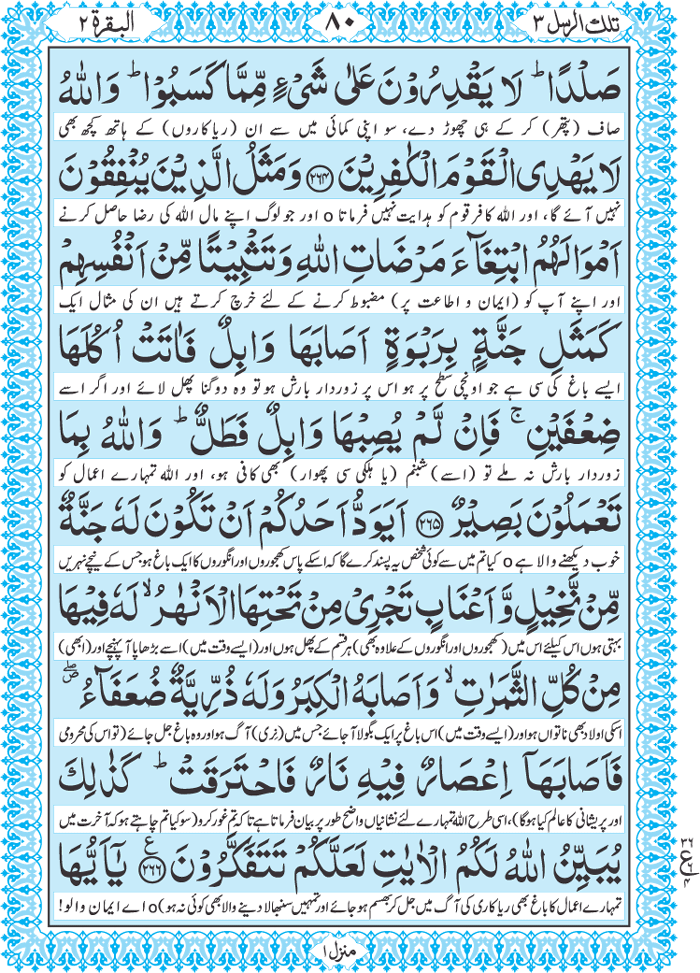 تلك الرسل ٣
٨٠
البقرة ٢
صَلْدًا ؕ لَا یَقْدِرُوْنَ عَلٰی شَیْءٍ مِّمَّا کَسَبُوْا ؕ وَاللّٰهُ
صاف (پتھر) کر کے ہی چھوڑ دے، سو اپنی کمائی میں سے ان (ریاکاروں) کے ہاتھ کچھ بھی
لَا یَهْدِی الْقَوْمَ الْکٰفِرِیْنَ ﴿۲۶۴﴾ وَمَثَلُ الَّذِیْنَ یُنْفِقُوْنَ
نہیں آئے گا، اور اللہ کافر قوم کو ہدایت نہیں فرماتا o اور جو لوگ اپنے مال اللہ کی رضا حاصل کرنے
اَمْوَالَهُمُ ابْتِغَآءَ مَرْضَاتِ اللّٰهِ وَتَثْبِیْتًا مِّنْ اَنْفُسِهِمْ
اور اپنے آپ کو (ایمان و اطاعت پر) مضبوط کرنے کے لئے خرچ کرتے ہیں ان کی مثال ایک
کَمَثَلِ جَنَّةٍۭ بِرَبْوَةٍ اَصَابَهَا وَابِلٌ فَاٰتَتْ اُکُلَهَا
ایسے باغ کی سی ہے جو اونچی سطح پر ہو اس پر زوردار بارش ہو تو وہ دوگنا پھل لائے اور اگر اسے
ضِعْفَیْنِ ۚ فَاِنْ لَّمْ یُصِبْهَا وَابِلٌ فَطَلٌّ ؕ وَاللّٰهُ بِمَا
زوردار بارش نہ ملے تو (اسے) شبنم (یا ہلکی سی پھوار) بھی کافی ہو، اور اللہ تمہارے اعمال کو
تَعْمَلُوْنَ بَصِیْرٌ ﴿۲۶۵﴾ اَیَوَدُّ اَحَدُکُمْ اَنْ تَکُوْنَ لَهٗ جَنَّةٌ
خوب دیکھنے والا ہے o کیا تم میں سے کوئی شخص یہ پسند کرے گا کہ اسکے پاس کھجوروں اور انگوروں کا ایک باغ ہو جس کے نیچے نہریں
مِّنْ نَّخِیْلٍ وَّاَعْنَابٍ تَجْرِیْ مِنْ تَحْتِهَا الْاَنْهٰرُ ۙ لَهٗ فِیْهَا
بہتی ہوں اس کیلئے اس میں (کھجوروں اور انگوروں کے علاوہ بھی) ہر قسم کے پھل ہوں اور (ایسے وقت میں) اسے بڑھاپا آ پہنچے اور (ابھی)
مِنْ کُلِّ الثَّمَرٰتِ ۙ وَاَصَابَهُ الْکِبَرُ وَلَهٗ ذُرِّیَّةٌ ضُعَفَآءُ ۪ۖ
اسکی اولاد بھی ناتواں ہو اور (ایسے وقت میں) اس باغ پر ایک بگولا آ جائے جس میں (نِری) آگ ہو اور وہ باغ جل جائے (تو اس کی محرومی
فَاَصَابَهَاۤ اِعْصَارٌ فِیْهِ نَارٌ فَاحْتَرَقَتْ ؕ کَذٰلِكَ
اور پریشانی کا عالم کیا ہوگا)، اسی طرح اللہ تمہارے لئے نشانیاں واضح طور پر بیان فرماتا ہے تاکہ تم غور کرو (سو کیا تم چاہتے ہو کہ آخرت میں
یُبَیِّنُ اللّٰهُ لَکُمُ الْاٰیٰتِ لَعَلَّکُمْ تَتَفَکَّرُوْنَ ﴿۲۶۶﴾ ع یٰۤاَیُّهَا
تمہارے اعمال کا باغ بھی ریاکاری کی آگ میں جل کر بھسم ہو جائے اور تمہیں سنبھالا دینے والا بھی کوئی نہ ہو) o اے ایمان والو!
منزل ١